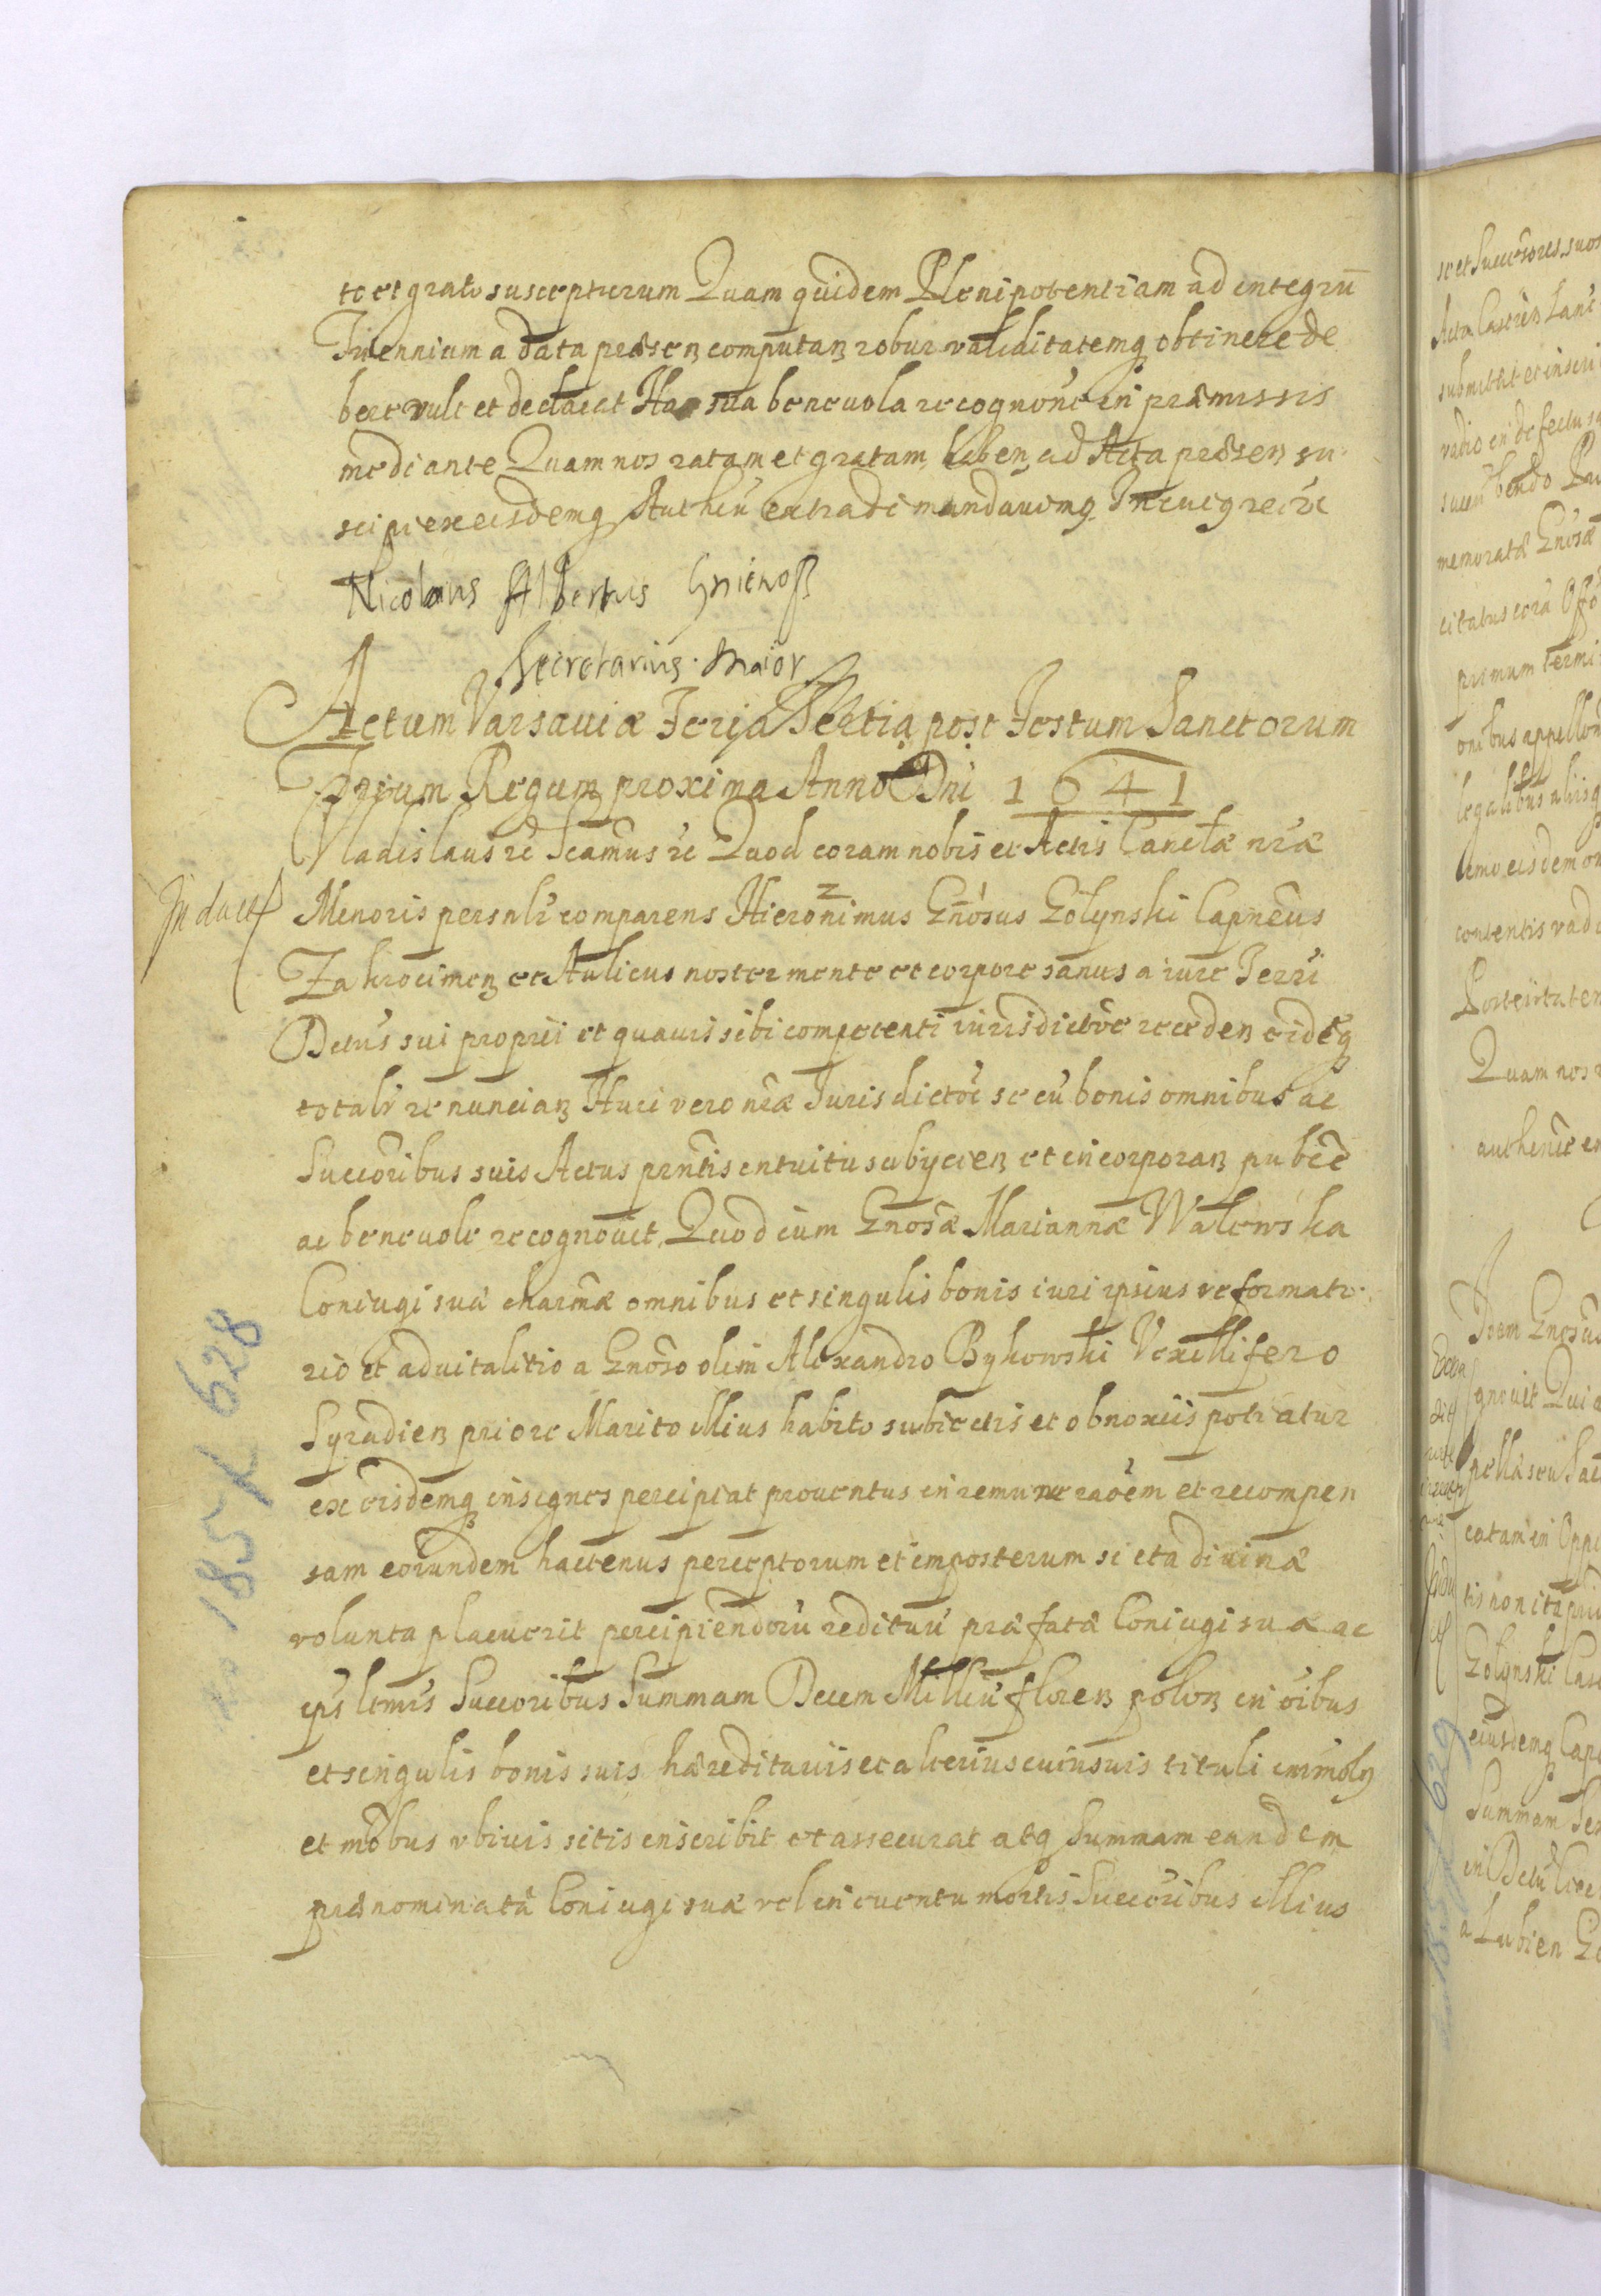 to et grato suscepturum Quam quidem Plenipotentiam ad integrū
Triennium a data præsen computan robur validitatemq obtinere de
bere vult et declarat Hac sua benevola recognōne in præmissis
mediante Quam nos ratam et gratam haben ad Acta præsen su
scipi ex eisdemq Authen extradi mandavimq In cuiq rei &c
Nicolaus Albertus Gniewosz
Secretarius Maior
Actum Varsaviæ Feria Tertia post Festum Sanctorum
Trium Regum proxima Anno Dni 1641
Vladislaus &c Scamus &c Quod coram nobis et Actis Cancłæ nræ
In duct Minoris persnlr comparens Hieronimus Gnosus Golynski Capneus
Zakrocimen et Aulicus noster mente et corpore sanus a iure Terri
Dctus sui proprii et quavis sibi competenti iurisdictōe receden eidēq
totalr renuncian Huic vero nræ Jurisdictōi se cū bonis omnibus ac
Succoribus suis Actus prntis intuitu subijcien et incorporan pubce
ac benevole recognovit Quod cum Gnosa Marianna Walewska
Coniugi sua charma omnibus et singulis bonis iuri ipsius reformato
rio et advitalitio a Gnoso olim Alexandro Bykowski Vexillifero
Syradien priore Marito illius habito subiectis et obnoxiis potiatur
ex eisdemq insignes percipiat proventus in remuneraōem et recompen
sam eorundem hactenus perceptorum et imposterum si ita divinæ
volunta placuerit percipiendorū redituū præfatæ Coniugi suæ ac
ips ltmis Succoribus Summam Decem Milliū floren polon in oibus
et singulis bonis suis hæreditariis et alterius cuiusvis tituli immobn
et mobus ubivis sitis inscribit et assecurat atq Summam eandem
prænominatæ Coniugi suæ vel in eventu mortis Succoribus illius
185 k 628
se et Succesores suos
Acta Castren
submittit et inscri
vadio in defectu
memoratæ Gnosæ
primum termi
onibus appellon
legalibus aliisq
contentis vad
Quam nos
Idem Gnosus
gnovit Quia
catam in Oppi
Golynski Cas
eiusdemq Cap
Summam
a Lubien
629